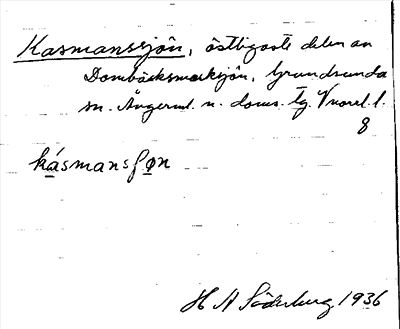 Kasmanssjön, östligaste delen av
Dombäcksmarksjön, Grundsunda
sn. Ångerml. n. doms. tg. Vnorrl. l.
8
kásmansʃøn
H A Söderberg 1936